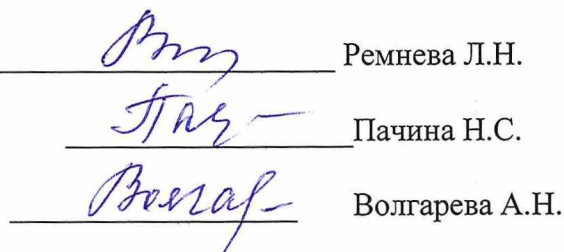 Ремнева Л.Н.
Пачина Н.С.
Волгарева А.Н.